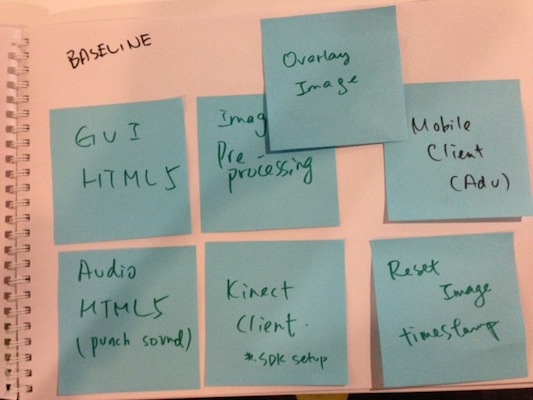 BASELINE
Overlay
Image
GUI
HTML5
Pre-
processing
Mobile
Client
(Adv)
Audio
HTML5
(punch sound)
Kinect
Client.
*.SDK setup
Reset
Image
timestamp